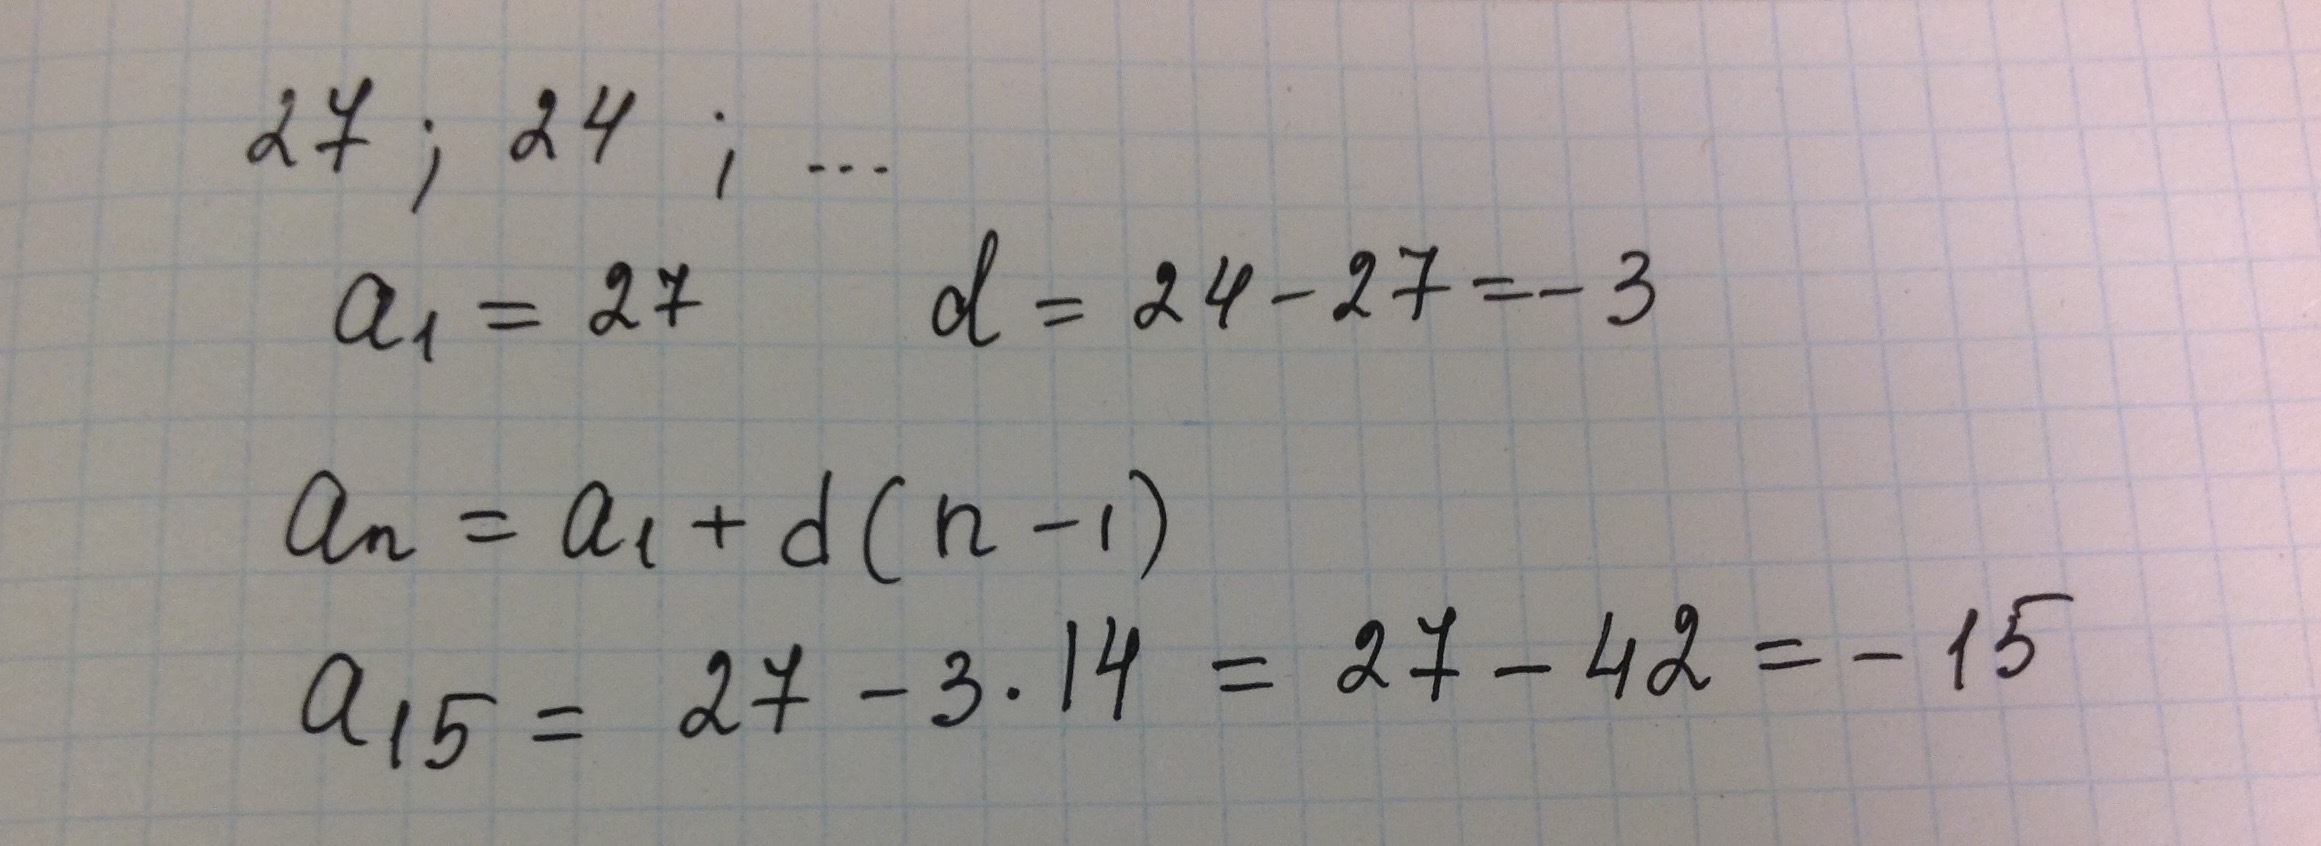 27 ; 24 ; ...
a₁ = 27 d = 24 - 27 = - 3
aₙ = a₁ + d ( n - 1 )
a₁₅ = 27 - 3 · 14 = 27 - 42 = - 15